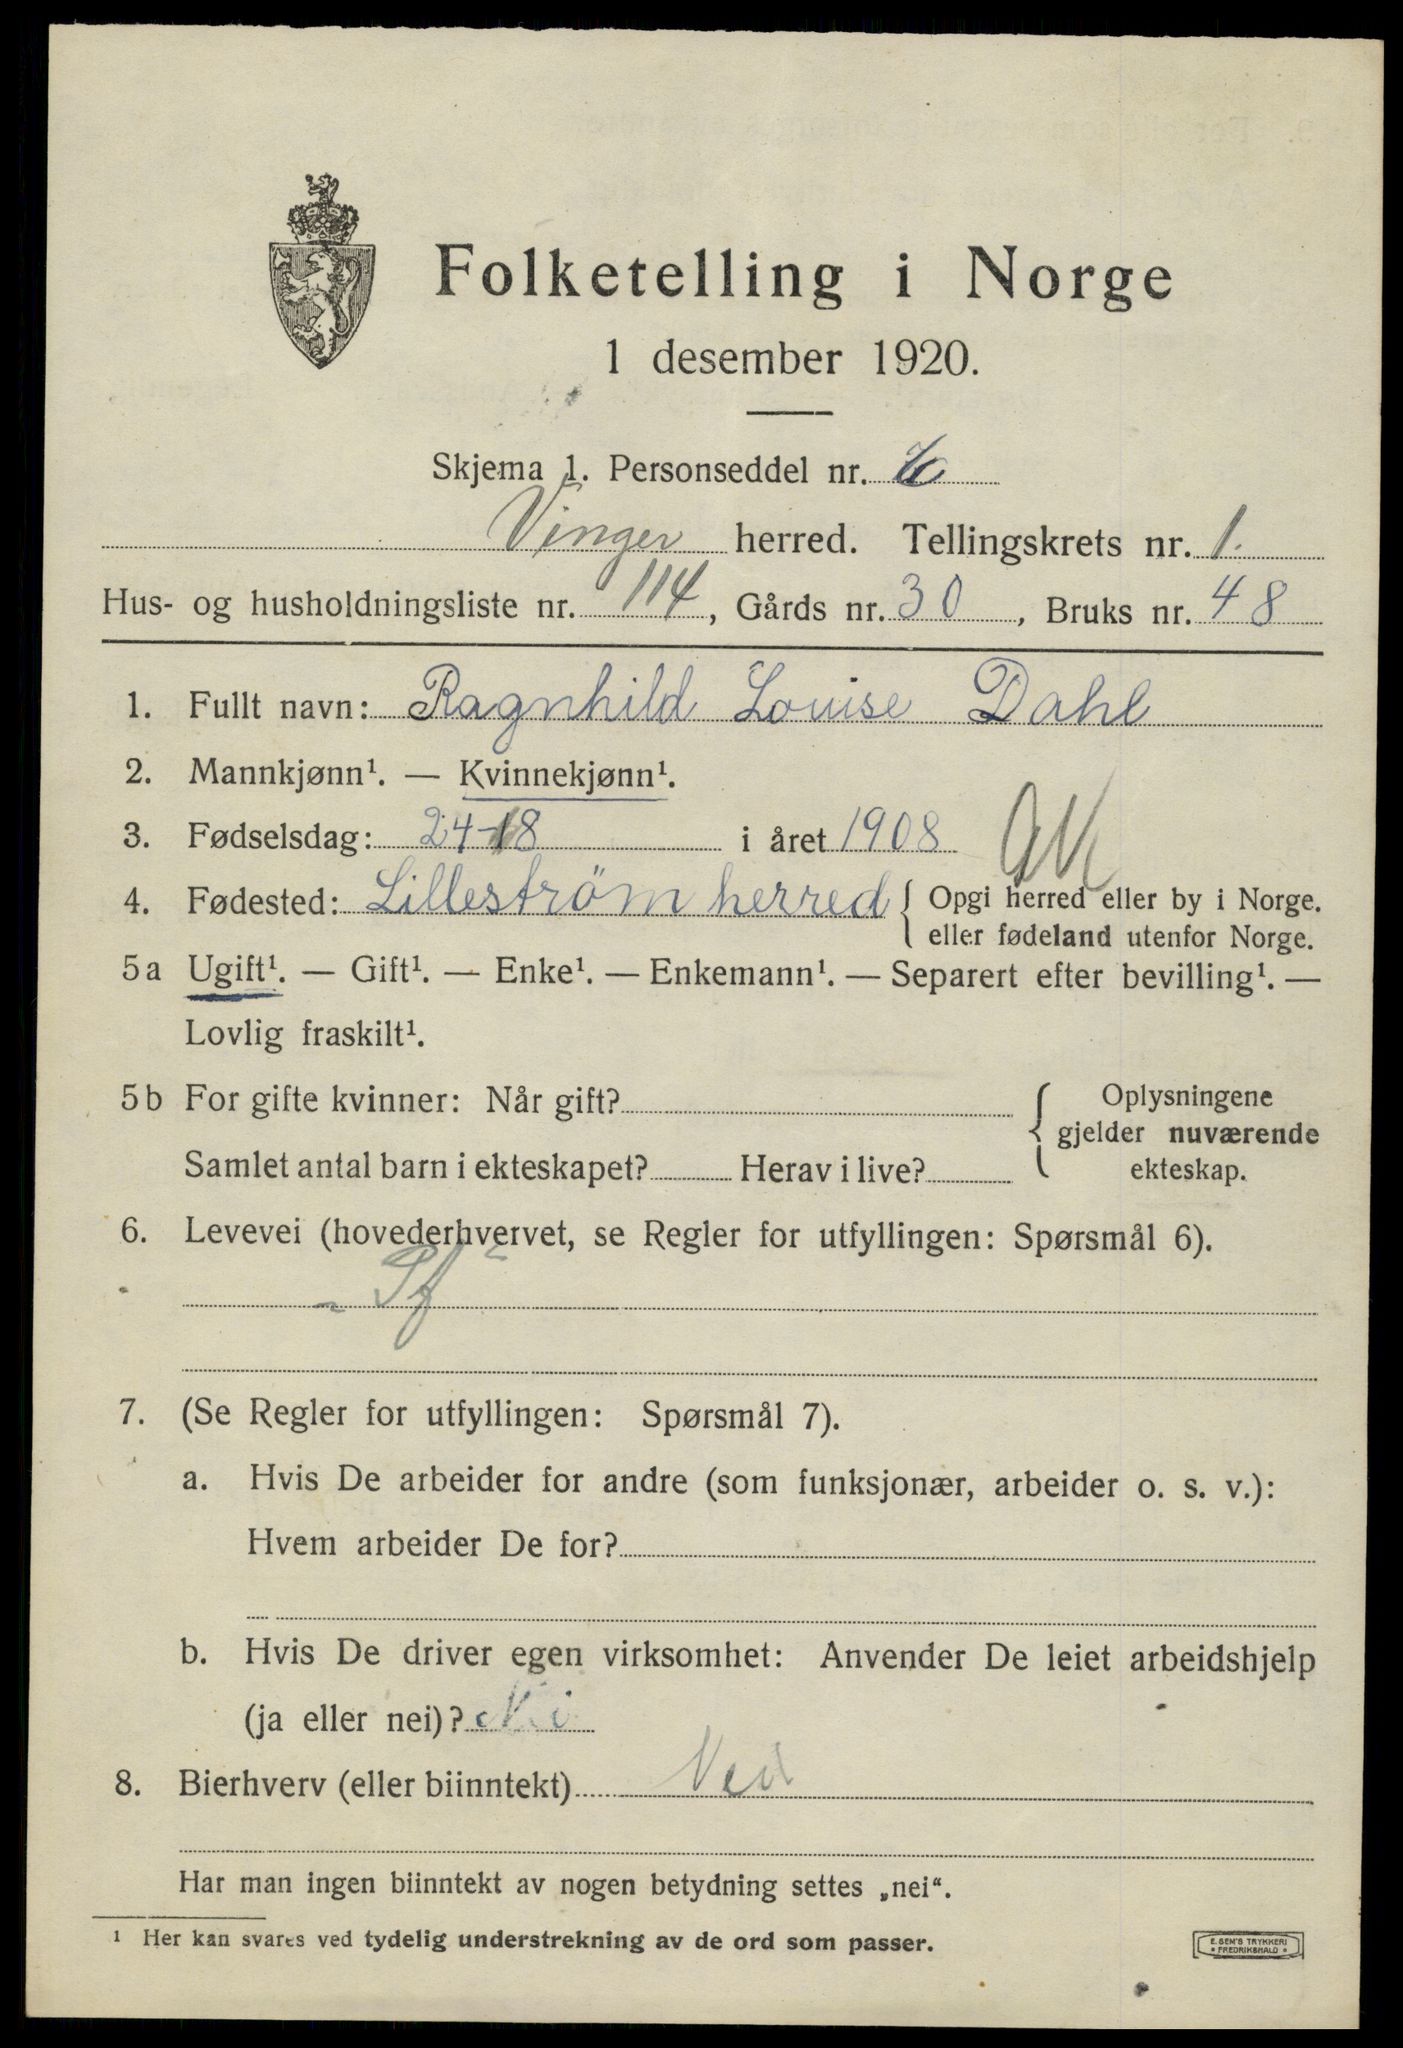 Folketelling i Norge
1 desember 1920.
Skjema 1. Personseddel nr. 6
Vinger herred. Tellingskrets nr. 1.
Hus- og husholdningsliste nr. 114, Gårds nr. 30, Bruks nr. 48
1. Fullt navn: Ragnhild Louise Dahl
2. Mannkjønn¹. — Kvinnekjønn¹.
3. Fødselsdag: 24-8 i året 1908
4. Fødested: Lilleström herred { Opgi herred eller by i Norge.
eller fødeland utenfor Norge.
5a Ugift¹. — Gift¹. — Enke¹. — Enkemann¹. — Separert efter bevilling¹. —
Lovlig fraskilt¹.
5b For gifte kvinner: Når gift?
Samlet antal barn i ekteskapet? Herav i live?
{ Oplysningene
gjelder nuværende
ekteskap.
6. Levevei (hovederhvervet, se Regler for utfyllingen: Spørsmål 6).
7. (Se Regler for utfyllingen: Spørsmål 7).
a. Hvis De arbeider for andre (som funksjonær, arbeider o. s. v.):
Hvem arbeider De for?
b. Hvis De driver egen virksomhet: Anvender De leiet arbeidshjelp
(ja eller nei)? Nei
8. Bierhverv (eller biinntekt)
Har man ingen biinntekt av nogen betydning settes „nei“.
¹ Her kan svares ved tydelig understrekning av de ord som passer.
E. SEM'S TRYKKERI
• FREDRIKSHALD •